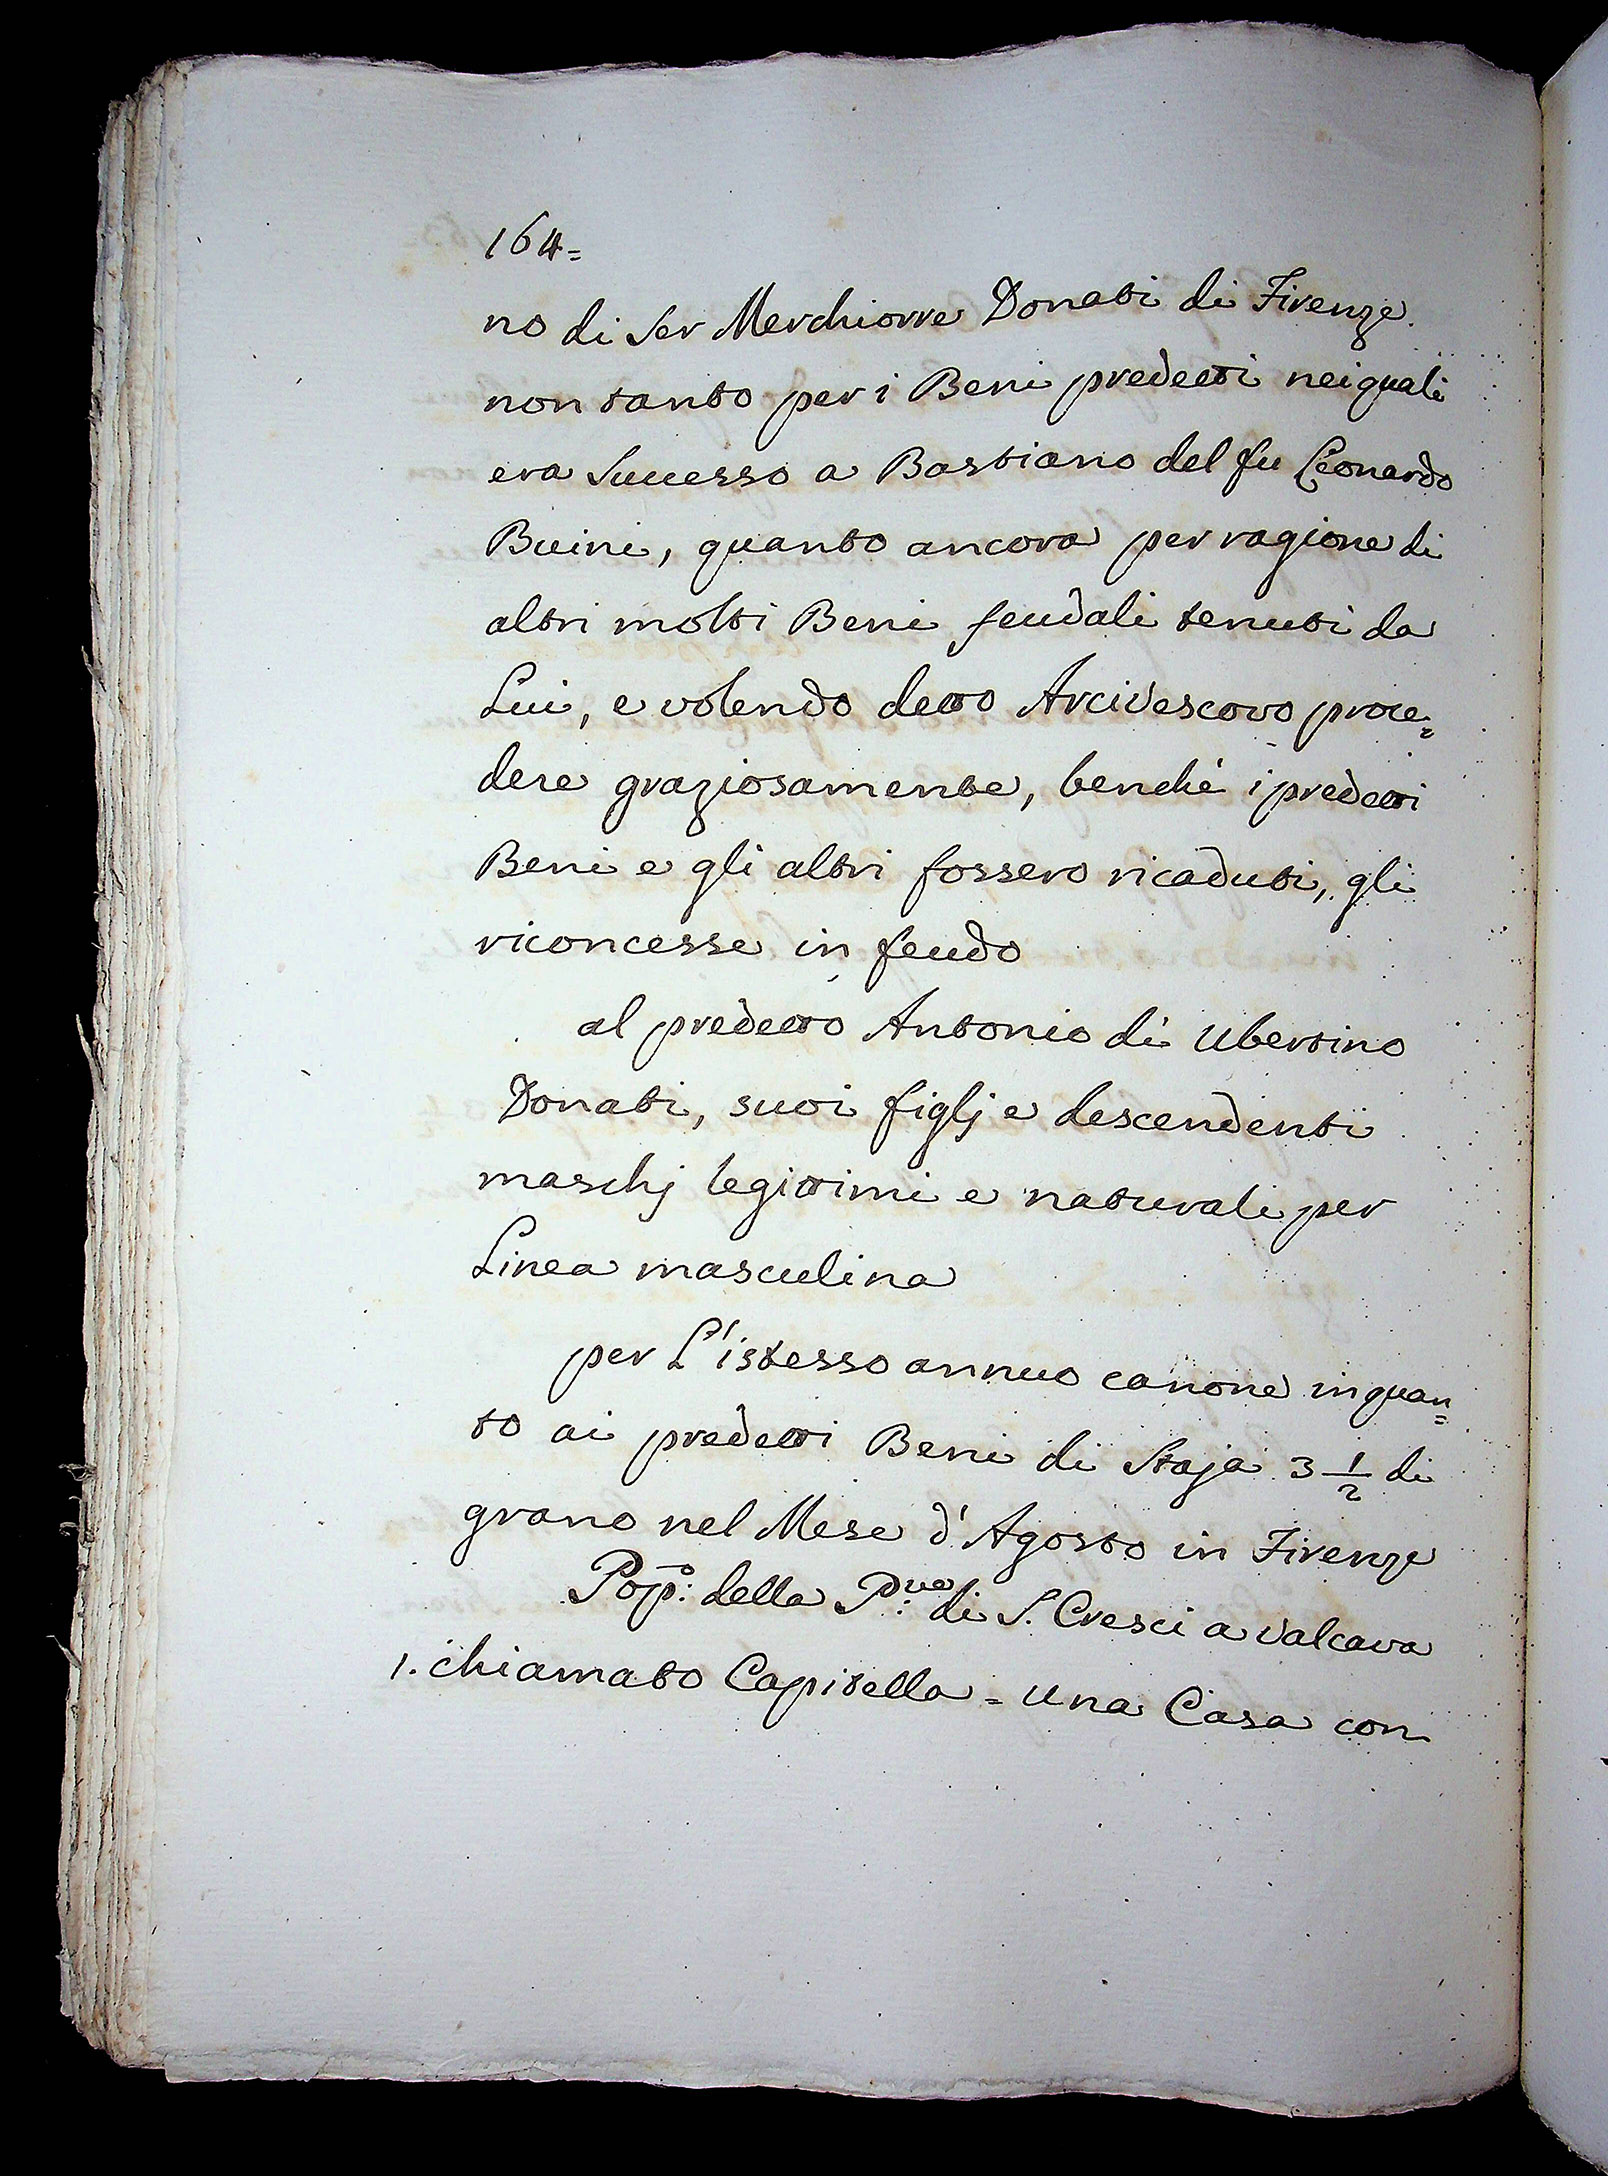 164=
no di Ser Merchiorre Donati di Firenze
non tanto per i Beni predetti nei quali
era Successo a Bastiano del fu Leonardo
Buini, quanto ancora per ragione di
altri molti Beni feudali tenuti da
Lui, e volendo detto Arcivescovo proce=
dere graziosamente, benchè i predetti
Beni e gli altri fossero ricaduti, gli
riconcesse in feudo
al predetto Antonio di Ubertino
Donati, suoi figlj e descendenti
maschj legittimi e naturali per
Linea masculina
per L'istesso annuo canone in quan=
to ai predetti Beni di Staja 3 1/2 di
grano nel Mese d'Agosto in Firenze
Pop:º della P:ve di S. Cresci a Valcava
1. chiamato Capitella = una Casa con